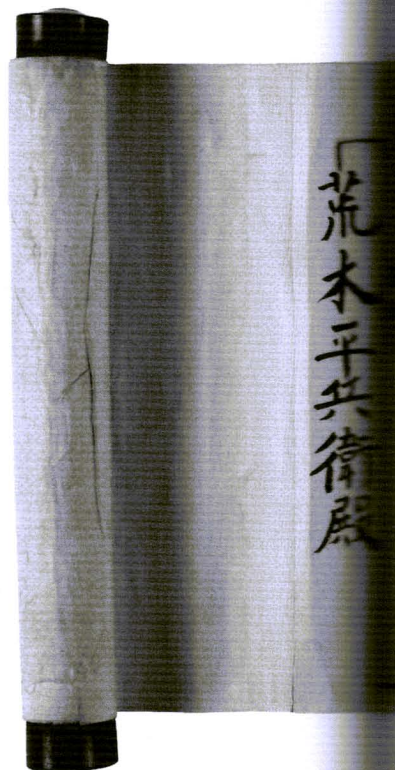 「荒木平兵衛殿